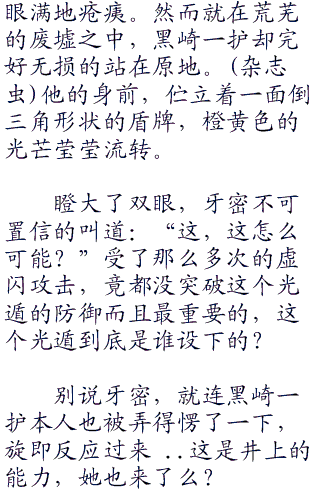 眼满地疮痍。然而就在荒芜
的废墟之中，黑崎一护却完
好无损的站在原地。(杂志
虫)他的身前，伫立着一面倒
三角形状的盾牌，橙黄色的
光芒莹莹流转。
瞪大了双眼，牙密不可
置信的叫道：“这，这怎么
可能？”受了那么多次的虚
闪攻击，竟都没突破这个光
遁的防御而且最重要的，这
个光遁到底是谁设下的？
别说牙密，就连黑崎一
护本人也被弄得愣了一下，
旋即反应过来 ..这是井上的
能力，她也来了么？